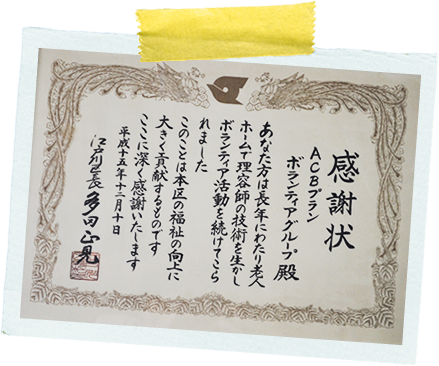 感謝状
ACBプラン
ボランティアグループ 殿
あなた方は長年にわたり老人
ホームで理容師の技術を生かし
ボランティア活動を続けてこら
れました
このことは本区の福祉の向上に
大きく貢献するものです
ここに深く感謝いたします
平成十五年十二月十日
江戸川区長 多田正見